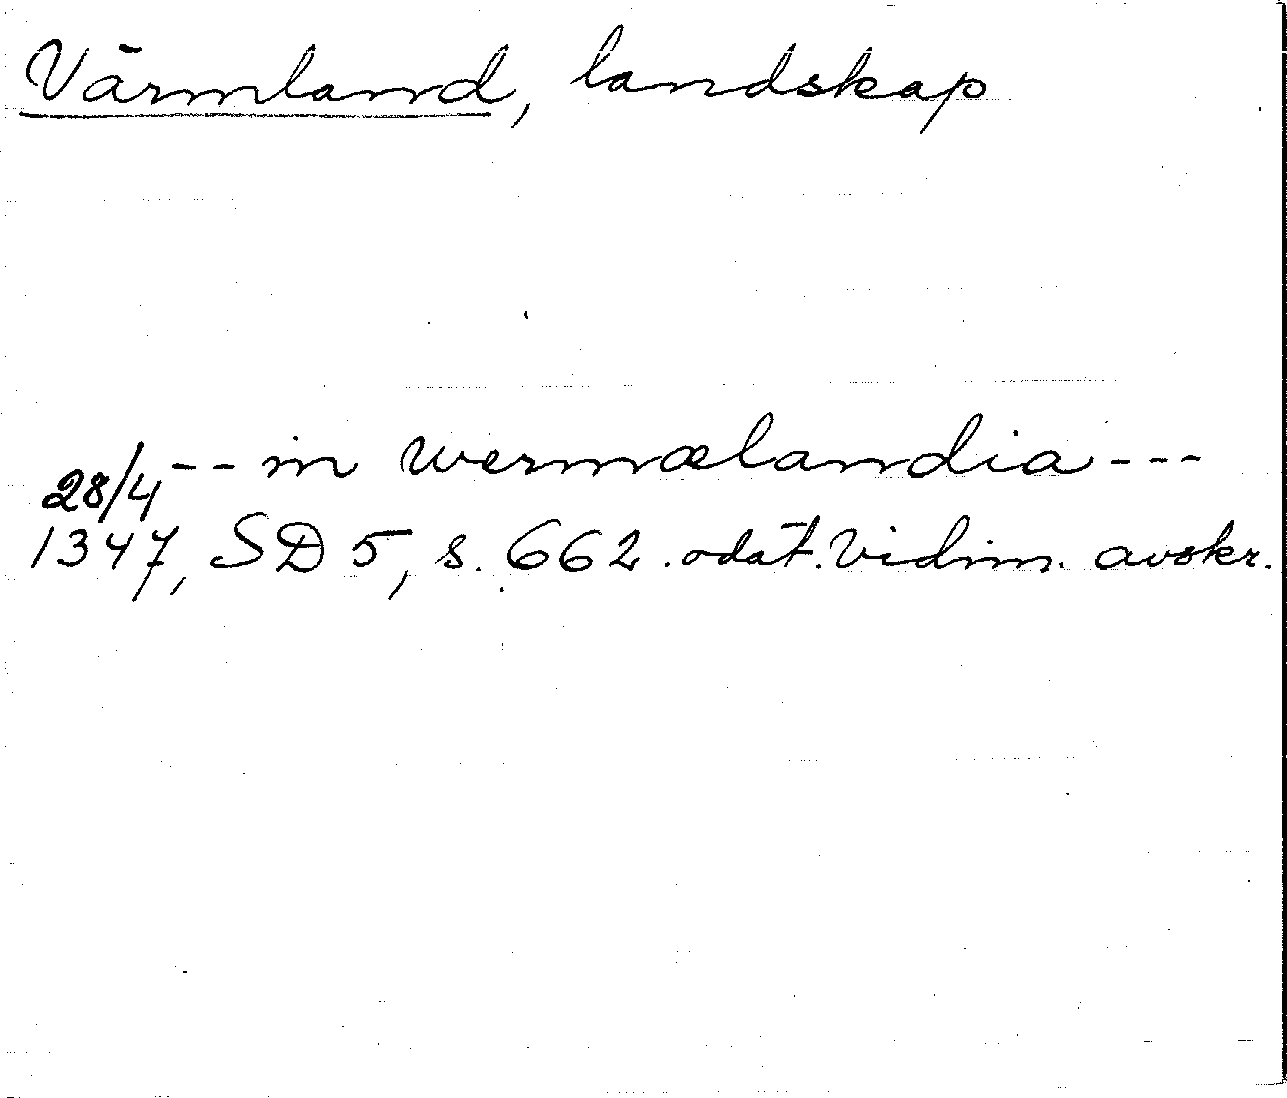 Värmland, landskap
-- in wermælandia ---
28/4
1347, SD 5, s. 662. odat. vidim. avskr.